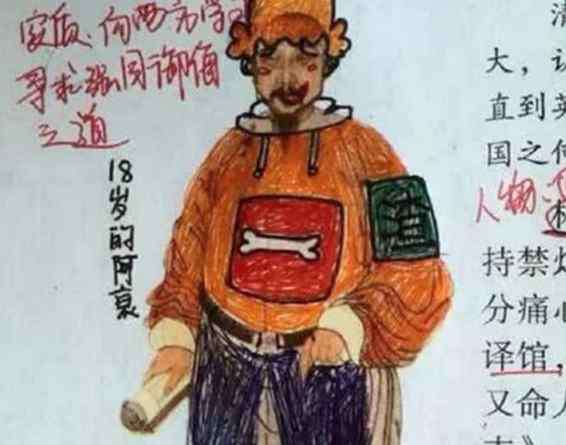 实质:向西方学
寻求强国御侮
之道
18岁的阿衰
大，
直到英
国之
人物:
持禁
分痛心
译馆，
又命